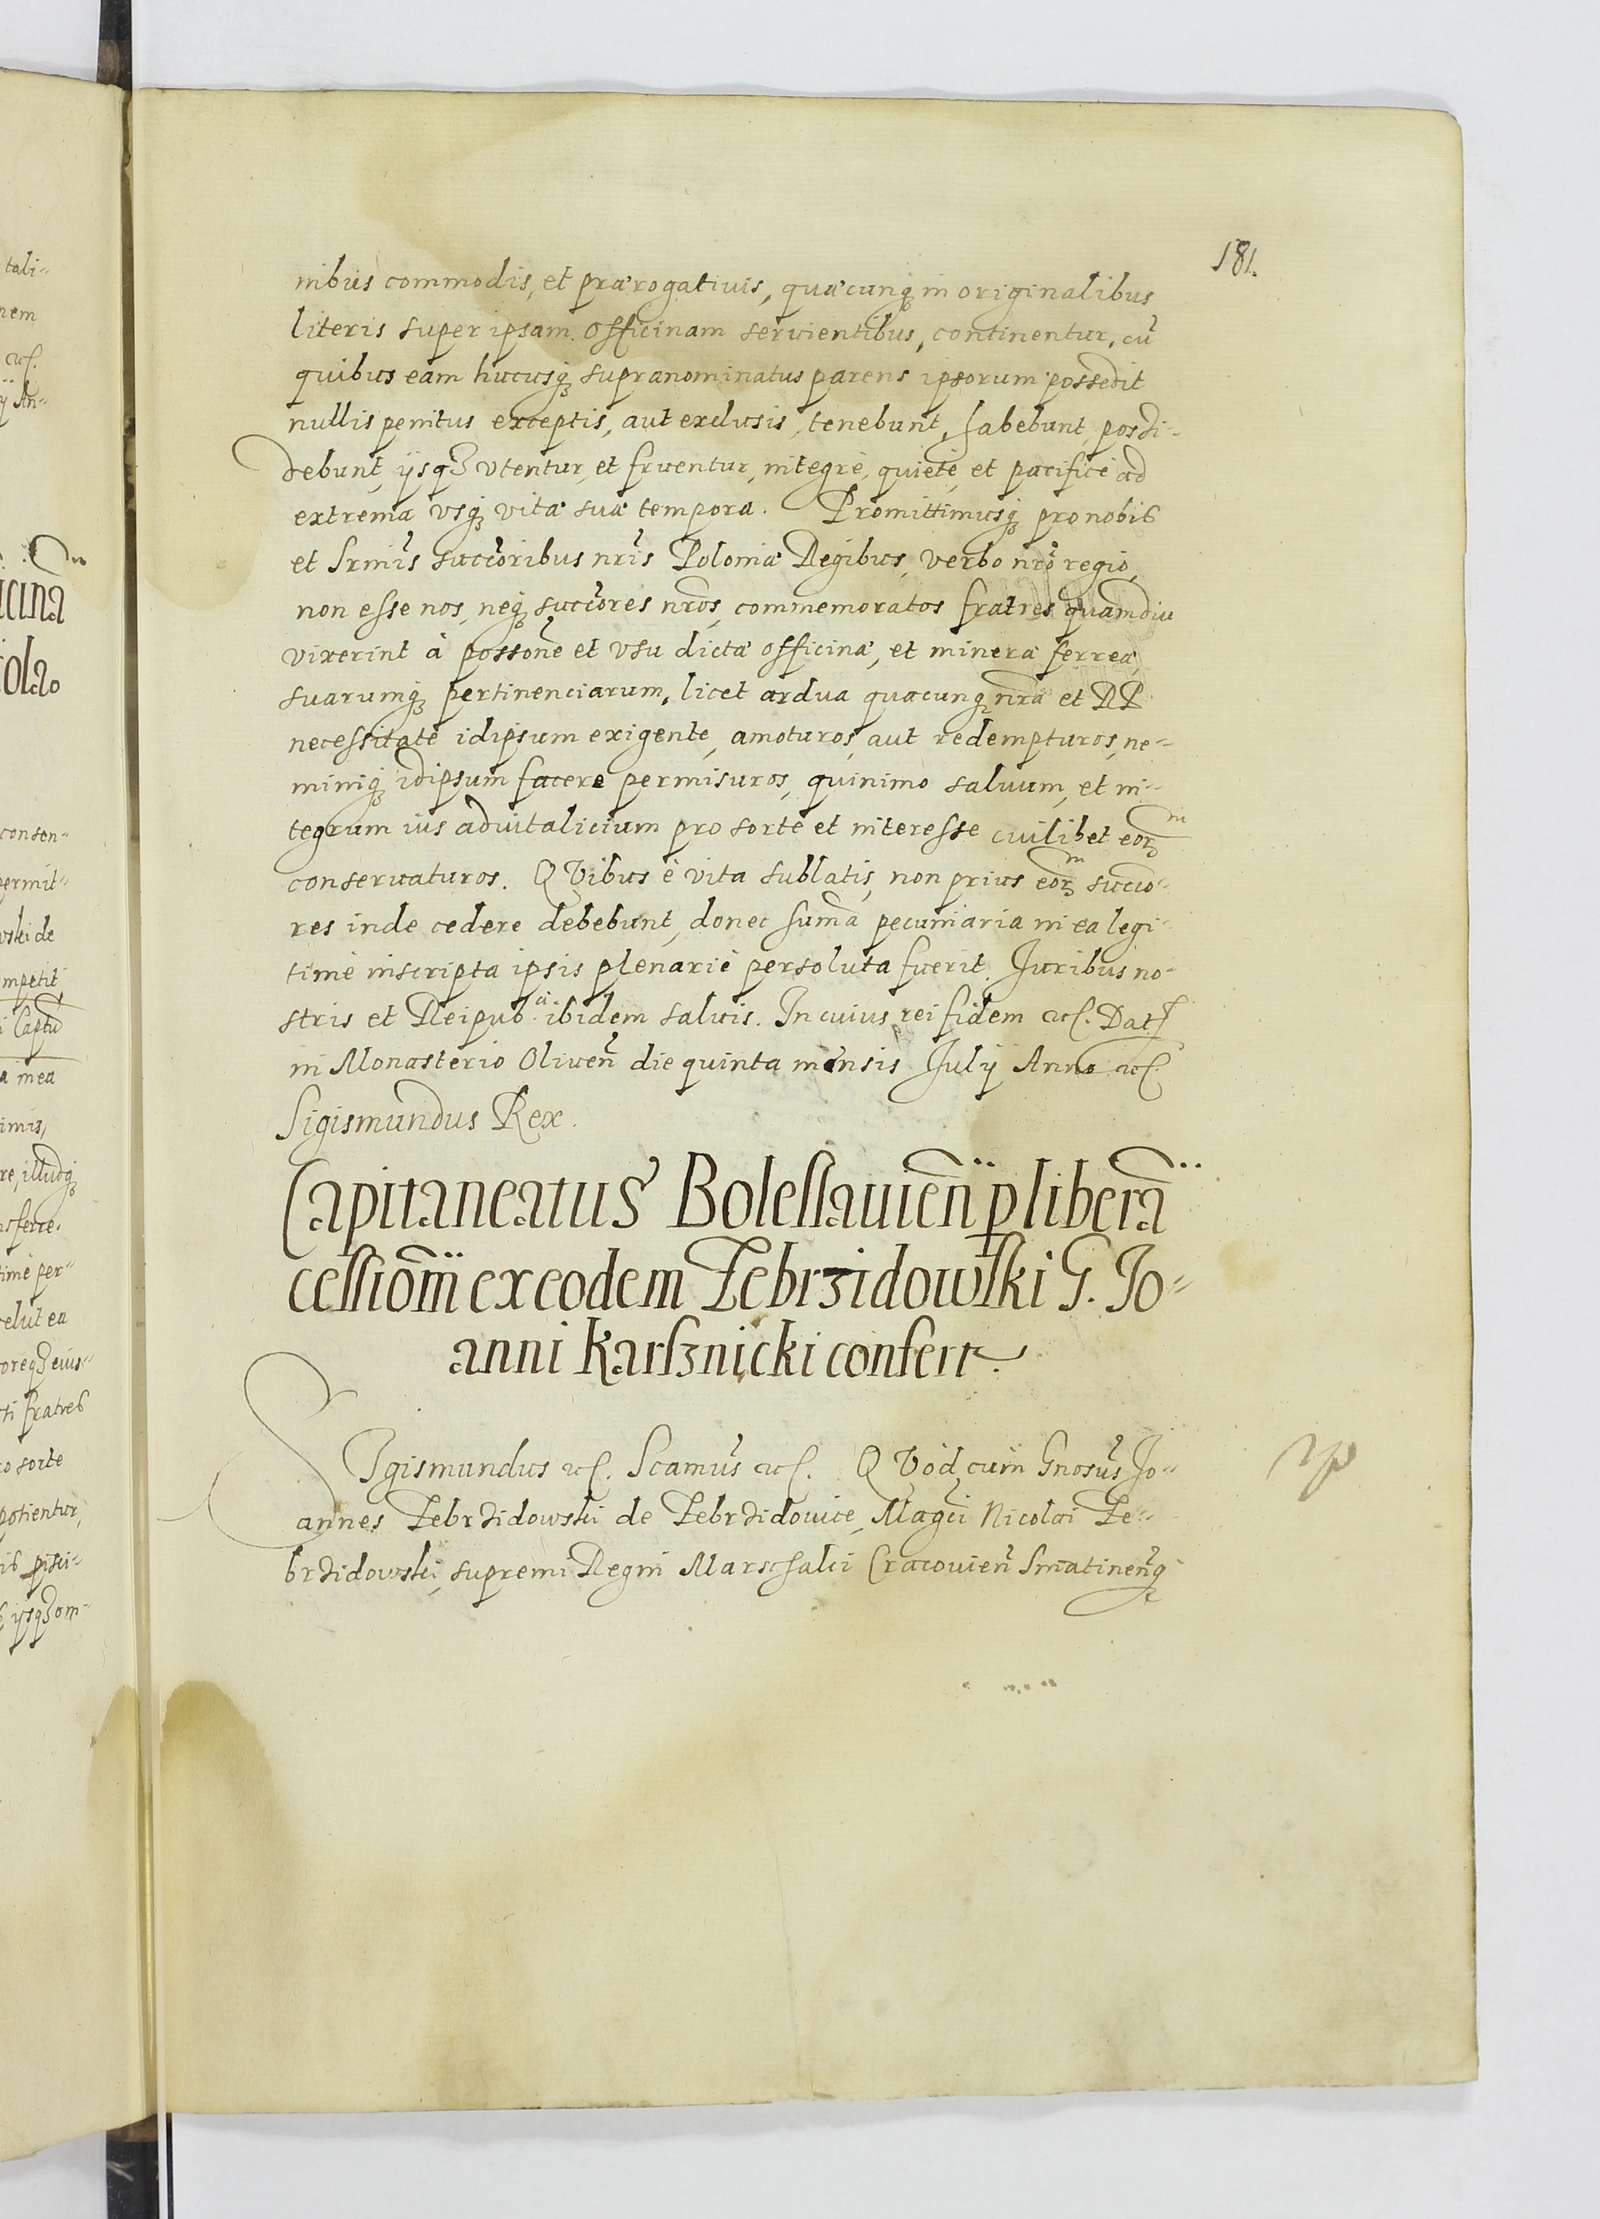 181.
nibus commodis, et prærogativis, quæcunq3 in originalibus
literis super ipsam officinam servientibus, continentur, cũ
quibus eam hucusq3 supranominatus parens ipsorum possedit
nullis penitus exceptis, aut exclusis, tenebunt, habebunt, possi-
debunt, ijsq3 vtentur, et fruentur, integrè, quietè, et pacificè ad
extrema vsq3 vitæ suæ tempora. Promittimusq3 pro nobis
et Srmis succoribus nris Poloniæ Regibus, verbo nro regio,
non esse nos, neq3 succores nros, commemoratos fratres quamdiu
vixerint à possone et vsu dictæ officinæ, et mineræ ferreæ,
suarumq3 pertinenciarum, licet ardua quacunq3 nra et RP
necessitate idipsum exigente, amoturos, aut redempturos, ne-
miniq3 idipsum facere permisuros, quinimo salvum, et in-
tegrum ius advitalicium pro sorte et interesse cuilibet eorm
conservaturos. QVibus è vita sublatis, non prius eorm succo-
res inde cedere debebunt, donec suma pecuniaria in ea legi-
time inscripta ipsis plenariè persoluta fuerit Juribus no-
stris et Reipub: ibidem salvis. In cuius rei fidem etc. Dat
in Monasterio Oliven die quinta mensis Julij Anno etc.
Sigismundus Rex.
Capitaneatus Boleslavien p liberã
cessiom ex eodem Zebrzidowski G. Jo-
anni Karsznicki confert.
SIgismundus etc. Scamus etc. QVod cum Gnosus Jo-
annes Zebrzidowski de Zebrzidovice, Magci Nicolai Ze-
brzidowski, supremi Regni Marschalci Cracovien Sniatinenq3